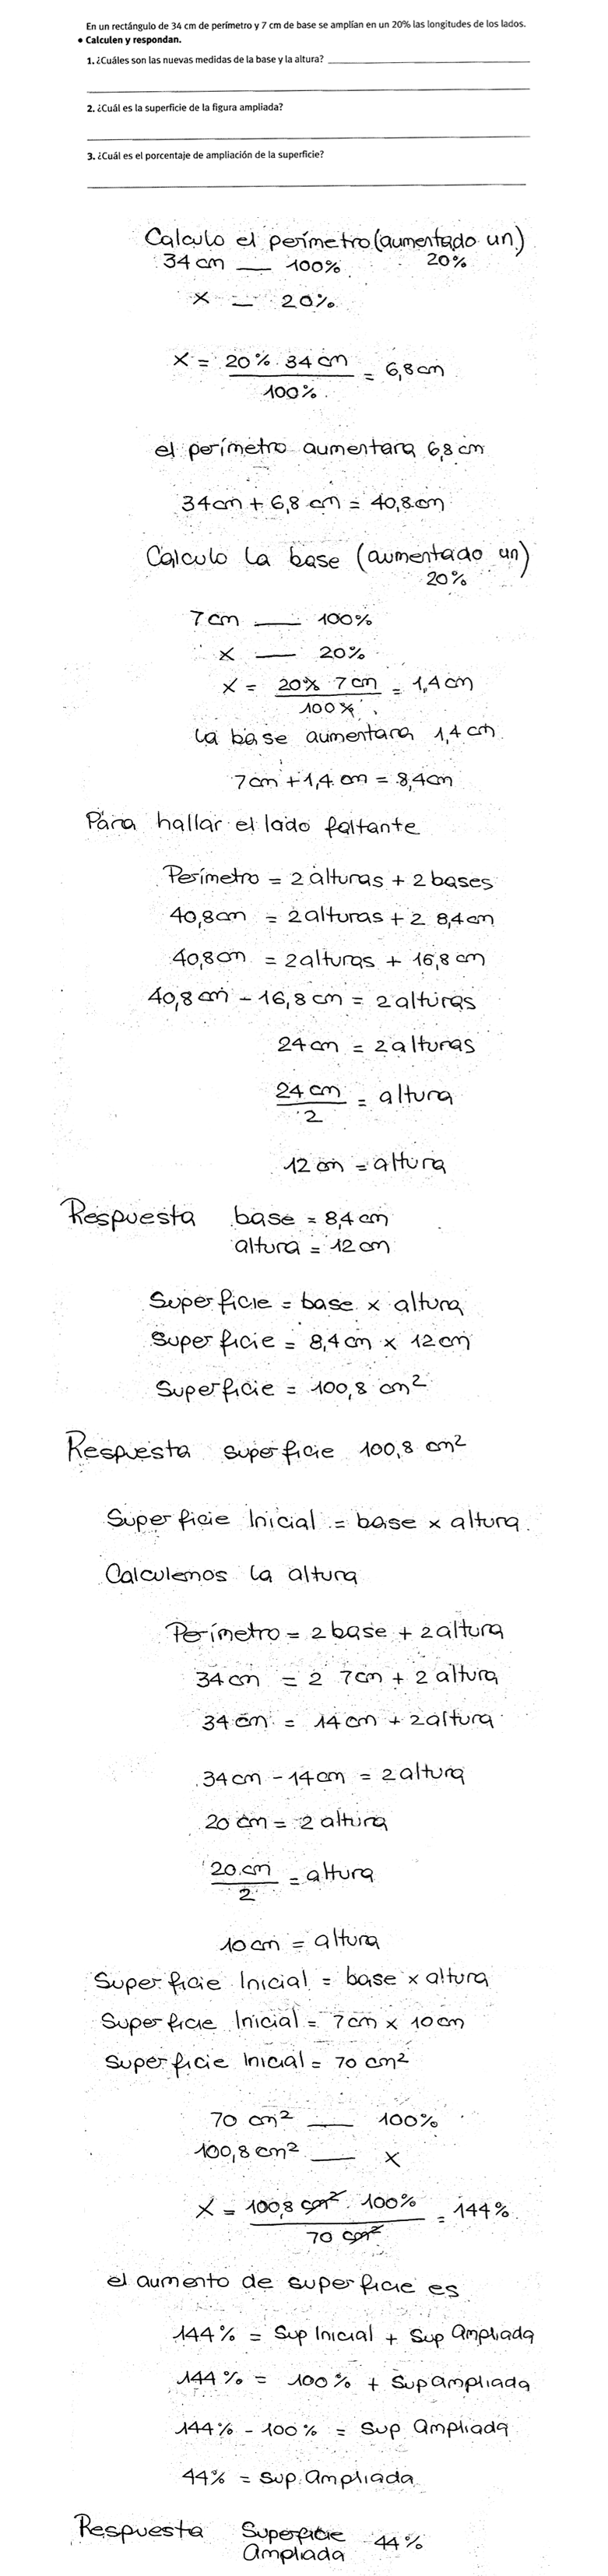 En un rectángulo de 34 cm de perímetro y 7 cm de base se amplían en un 20% las longitudes de los lados.
• Calculen y respondan.
1. ¿Cuáles son las nuevas medidas de la base y la altura?
2. ¿Cuál es la superficie de la figura ampliada?
3. ¿Cuál es el porcentaje de ampliación de la superficie?
Calculo el perímetro (aumentado un)
34 cm — 100% 20%
x — 20%
x = 20% . 34 cm / 100% = 6,8 cm
el perímetro aumentara 6,8 cm
34cm + 6,8 cm = 40,8 cm
Calculo la base (aumentado un)
20%
7 cm — 100%
x — 20%
x = 20% 7 cm / 100% = 1,4 cm
la base aumentara 1,4 cm
7cm + 1,4 cm = 8,4cm
Para hallar el lado faltante
Perímetro = 2 alturas + 2 bases
40,8cm = 2 alturas + 2 8,4cm
40,8cm = 2 alturas + 16,8 cm
40,8 cm - 16,8 cm = 2 alturas
24 cm = 2 alturas
24 cm / 2 = altura
12 cm = altura
Respuesta base = 8,4 cm
altura = 12 cm
Superficie = base x altura
Superficie = 8,4 cm x 12 cm
Superficie = 100,8 cm²
Respuesta superficie 100,8 cm²
Superficie Inicial = base x altura
Calculemos la altura
Perímetro = 2 base + 2 altura
34 cm = 2 7cm + 2 altura
34 cm = 14 cm + 2 altura
34 cm - 14 cm = 2 altura
20 cm = 2 altura
20 cm / 2 = altura
10 cm = altura
Superficie Inicial = base x altura
Superficie Inicial = 7cm x 10 cm
Superficie Inicial = 70 cm²
70 cm² — 100%
100,8 cm² — x
x = 100,8 cm² . 100% / 70 cm² = 144%
el aumento de superficie es
144% = Sup Inicial + Sup Ampliada
144% = 100% + Sup ampliada
144% - 100% = Sup Ampliada
44% = Sup. Ampliada
Respuesta Superficie 44%
Ampliada